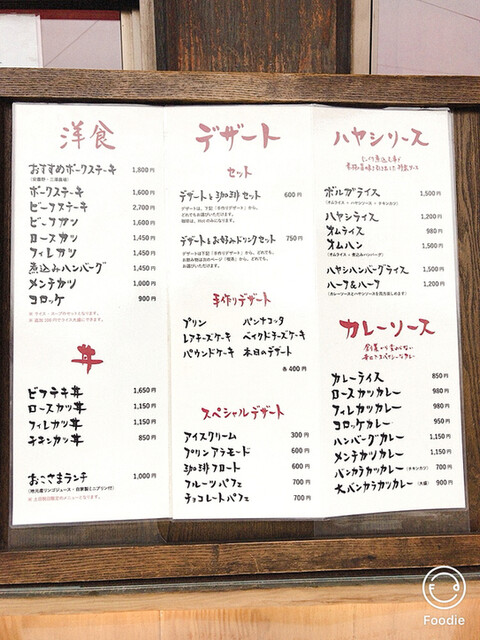 洋食
おすすめポークステーキ 1,800円
ポークステーキ 1,600円
ビーフステーキ 2,700円
ビーフカツ 1,600円
ロースカツ 1,450円
フィレカツ 1,450円
煮込みハンバーグ 1,450円
メンチカツ 1,000円
コロッケ 900円
※ライス・スープのセットとなります。
丼
ビフテキ丼 1,650円
ロースカツ丼 1,150円
フィレカツ丼 1,150円
チキンカツ丼 850円
おこさまランチ 1,000円
デザート
セット
デザート&珈琲セット 600円
デザートは、下記「手作りデザート」から、
どれでもお選びいただけます。
珈琲は、Hotのみになります。
デザート&お好みドリンクセット 750円
デザートは下記「手作りデザート」から、どれでも、
どれでもお選びいただけます。
手作りデザート
プリン パンナコッタ
レアチーズケーキ ベイクドチーズケーキ
パウンドケーキ 本日のデザート
各400円
スペシャルデザート
アイスクリーム 300円
プリンアラモード 600円
珈琲フロート 600円
フルーツパフェ 700円
チョコレートパフェ 700円
ハヤシソース
ボルガライス 1,500円
(オムライス×ハヤシソース×チキンカツ)
ハヤシライス 1,200円
オムライス 980円
オムハン 1,500円
(オムライス×煮込みハンバーグ)
ハヤシハンバーグライス 1,500円
ハーフ&ハーフ 1,200円
(カレーソースとハヤシソースを両方楽しめます)
カレーソース
カレーライス 850円
ロースカツカレー 980円
フィレカツカレー 980円
コロッケカレー 950円
ハンバーグカレー 1,150円
メンチカツカレー 1,150円
バンカラカツカレー(チキンカツ) 700円
大バンカラカツカレー(大盛) 900円
Foodie